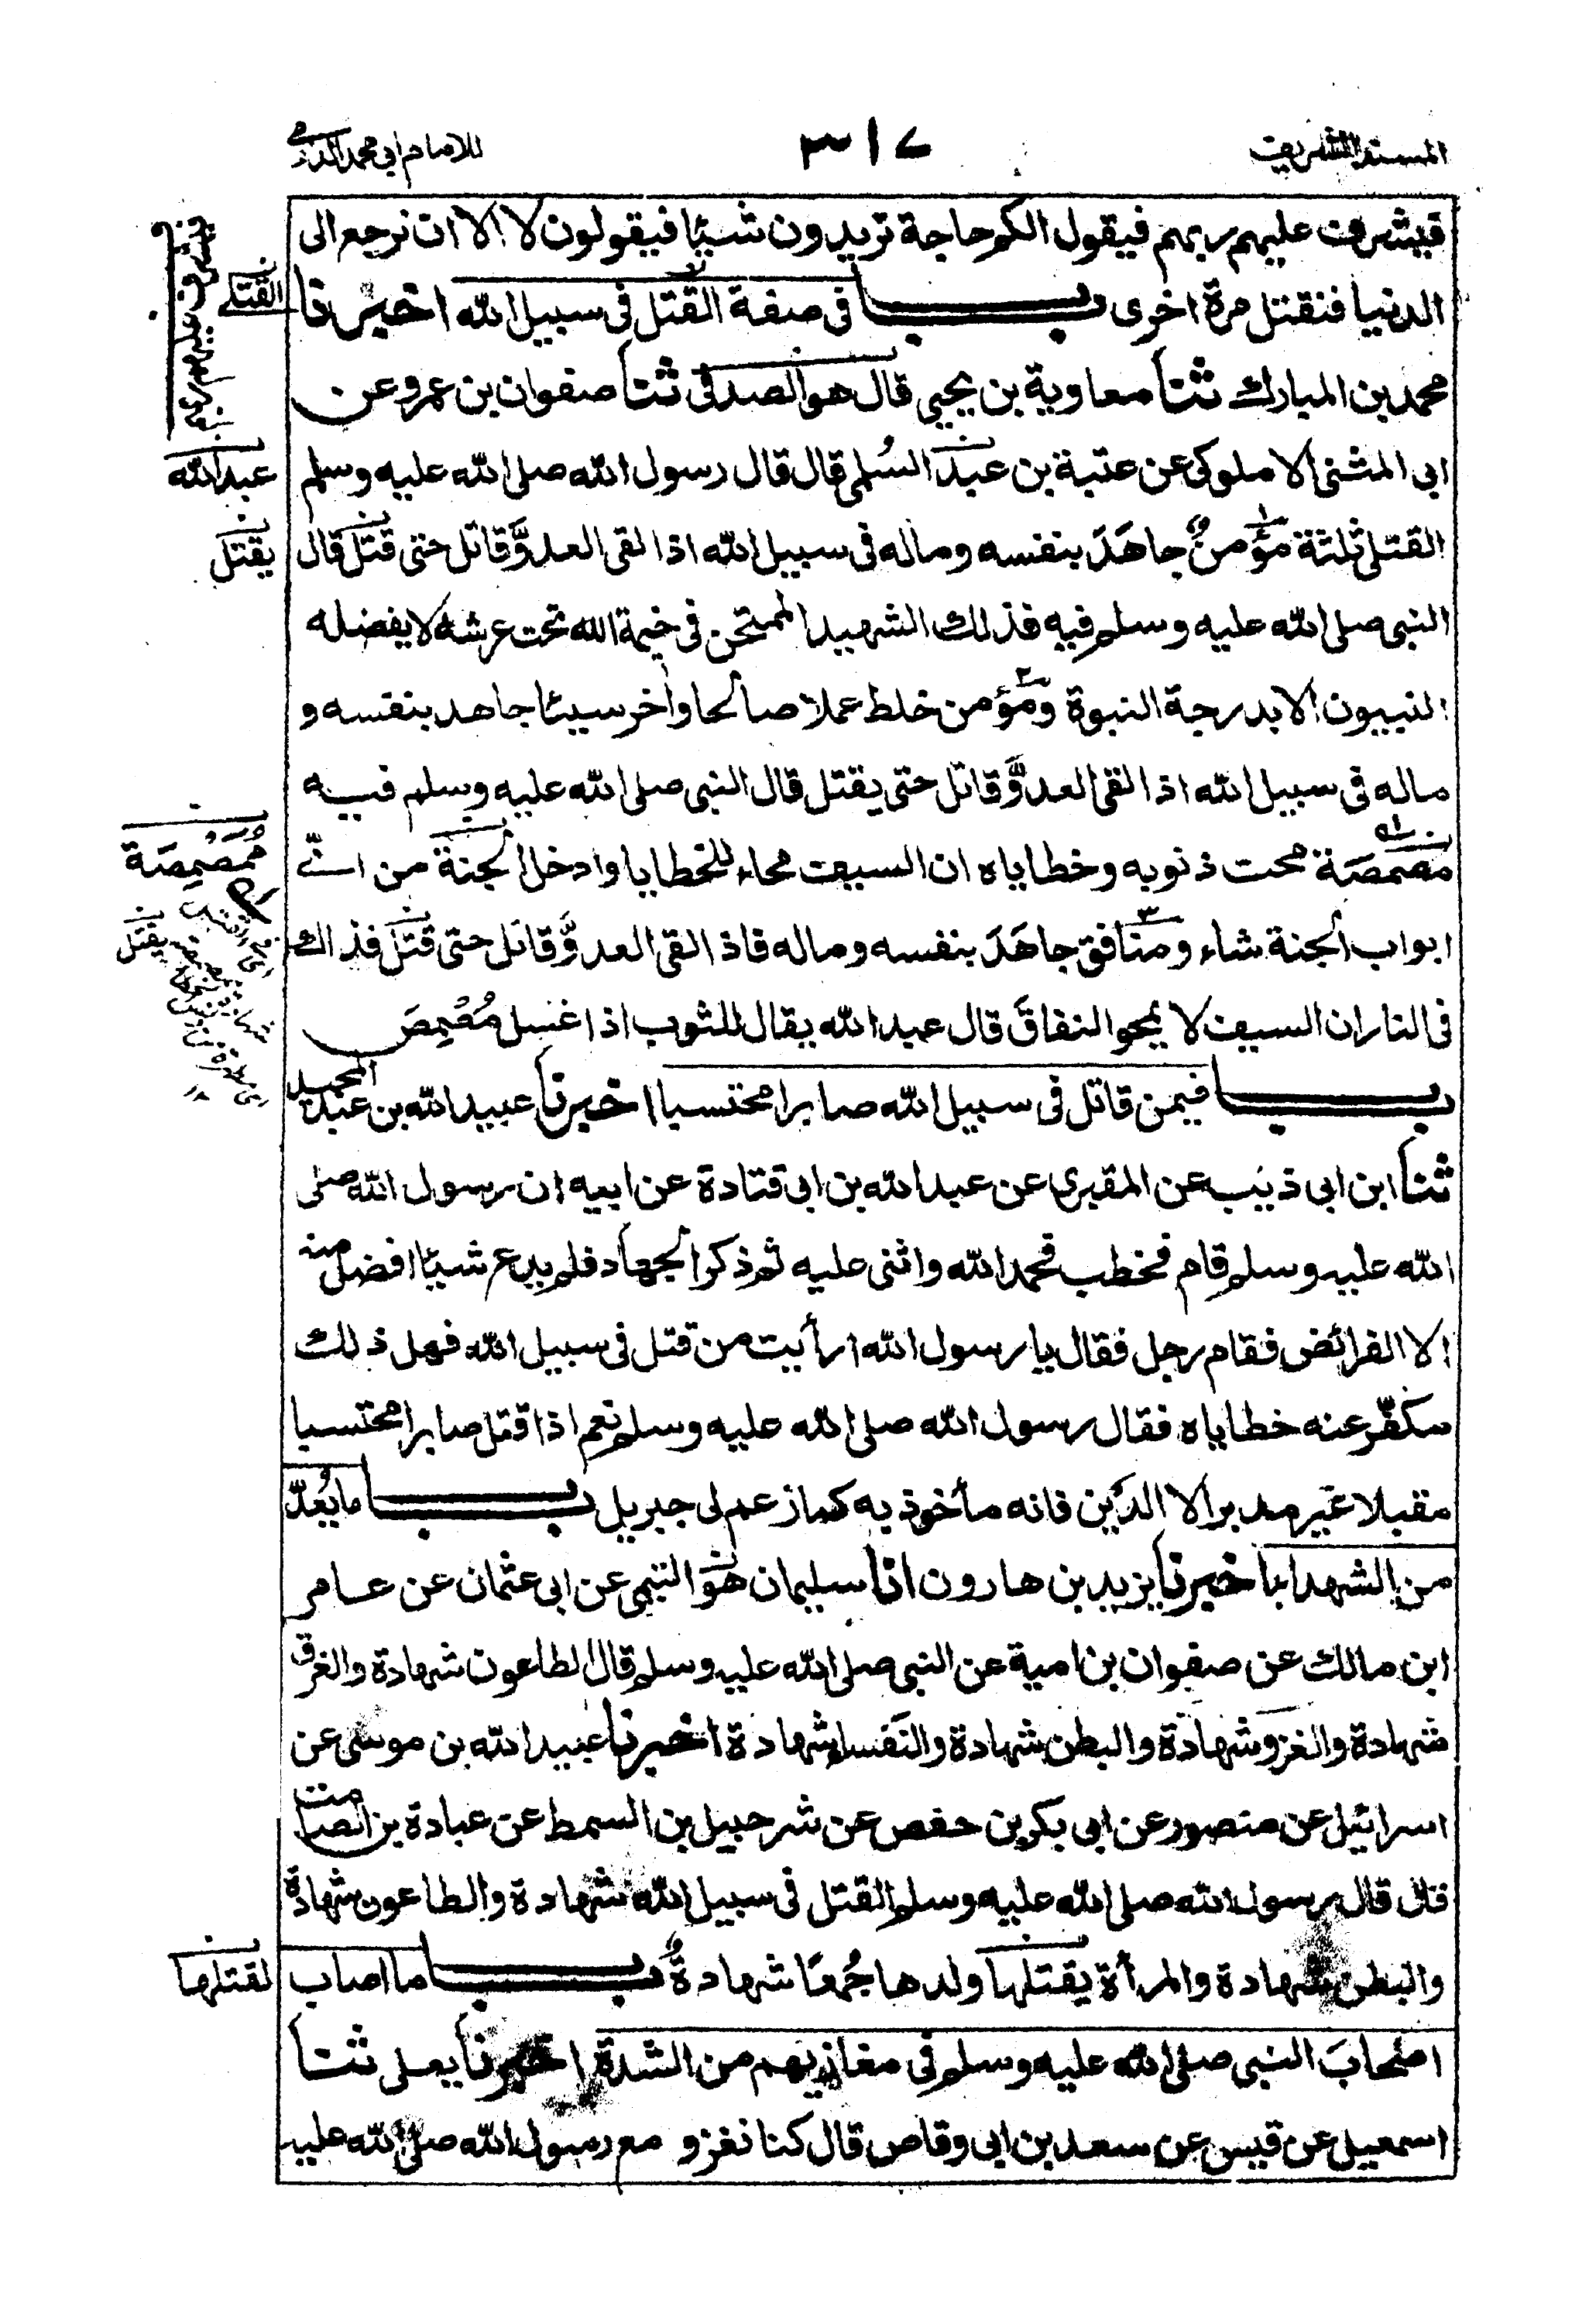 المسند الشريف
٣١٧
للامام ابى محمد الدارمى
فيشرف عليهم ربهم فيقول الكم حاجة تريدون شيئا فيقولون لا الا ان نرجع الى
الدنيا فنقتل مرة اخرى باب فى صفة القتل فى سبيل الله اخبرنا
القتلى
محمد بن المبارك ثنا معاوية بن يحيى قال هو الصدفى ثنا صفوان بن عمرو عن
ابى المثنى الاملوكى عن عتبة بن عبد السُلمى قال قال رسول الله صلى الله عليه وسلم
عبد الله
القتلى ثلثة مؤمنٌ جاهَدَ بنفسه وماله فى سبيل الله اذا لقى العدوَّ قاتل حتى قتل قال
يقتل
النبى صلى الله عليه وسلم فيه فذلك الشهيد الممتحن فى خيمة الله تحت عرشه لا يفضله
النبيون الا بدرجة النبوة ومؤمن خلط عملا صالحا واٰخر سيئا جاهد بنفسه و
ماله فى سبيل الله اذا لقى العدوَّ قاتل حتى يقتل قال النبى صلى الله عليه وسلم فيه
مصمصة محت ذنوبه وخطاياه ان السيف محاء للخطايا وادخل الجنة من اىّ
مُمَصْمِصَة
ابواب الجنة شاء ومنافق جاهَدَ بنفسه وماله فاذا لقى العدوَّ قاتل حتى قتل فذاك
يقتل
فى النار ان السيف لا يمحو النفاقَ قال عبد الله يقال للثوب اذا غسل مُصْمِصَ
باب فيمن قاتل فى سبيل الله صابرا محتسبا اخبرنا عبيد الله بن عبد المجيد
ثنا ابن ابى ذئب عن المقبرى عن عبد الله بن ابى قتادة عن ابيه ان رسول الله صلى
الله عليه وسلم قام فخطب فحمد الله واثنى عليه ثم ذكر الجهاد فلم يدع شيئا افضل منه
الا الفرائض فقام رجل فقال يا رسول الله ارأيت من قتل فى سبيل الله فهل ذلك
مكفّر عنه خطاياه فقال رسول الله صلى الله عليه وسلم نعم اذا قتل صابرا محتسبا
مقبلا غير مدبر الا الدَّين فانه مأخوذ به كما زعم لى جبريل باب ما يُعدّ
من الشهداء اخبرنا يزيد بن هارون انا سليمان هو التيمى عن ابى عثمان عن عامر
ابن مالك عن صفوان بن امية عن النبى صلى الله عليه وسلم قال الطاعون شهادة والغرق
شهادة والغزو شهادة والبطن شهادة والنفساء شهادة اخبرنا عبيد الله بن موسى عن
اسرائيل عن منصور عن ابى بكر بن حفص عن شرحبيل بن السمط عن عبادة بن الصامت
قال قال رسول الله صلى الله عليه وسلم القتل فى سبيل الله شهادة والطاعون شهادة
والبطن شهادة والمرأة يقتلها ولدها جُمعًا شهادةٌ باب ما اصاب
لقتلها
اصحابَ النبى صلى الله عليه وسلم فى مغازيهم من الشدة اخبرنا يعلى ثنا
اسمعيل عن قيس عن سعد بن ابى وقاص قال كنا نغزو مع رسول الله صلى الله عليه